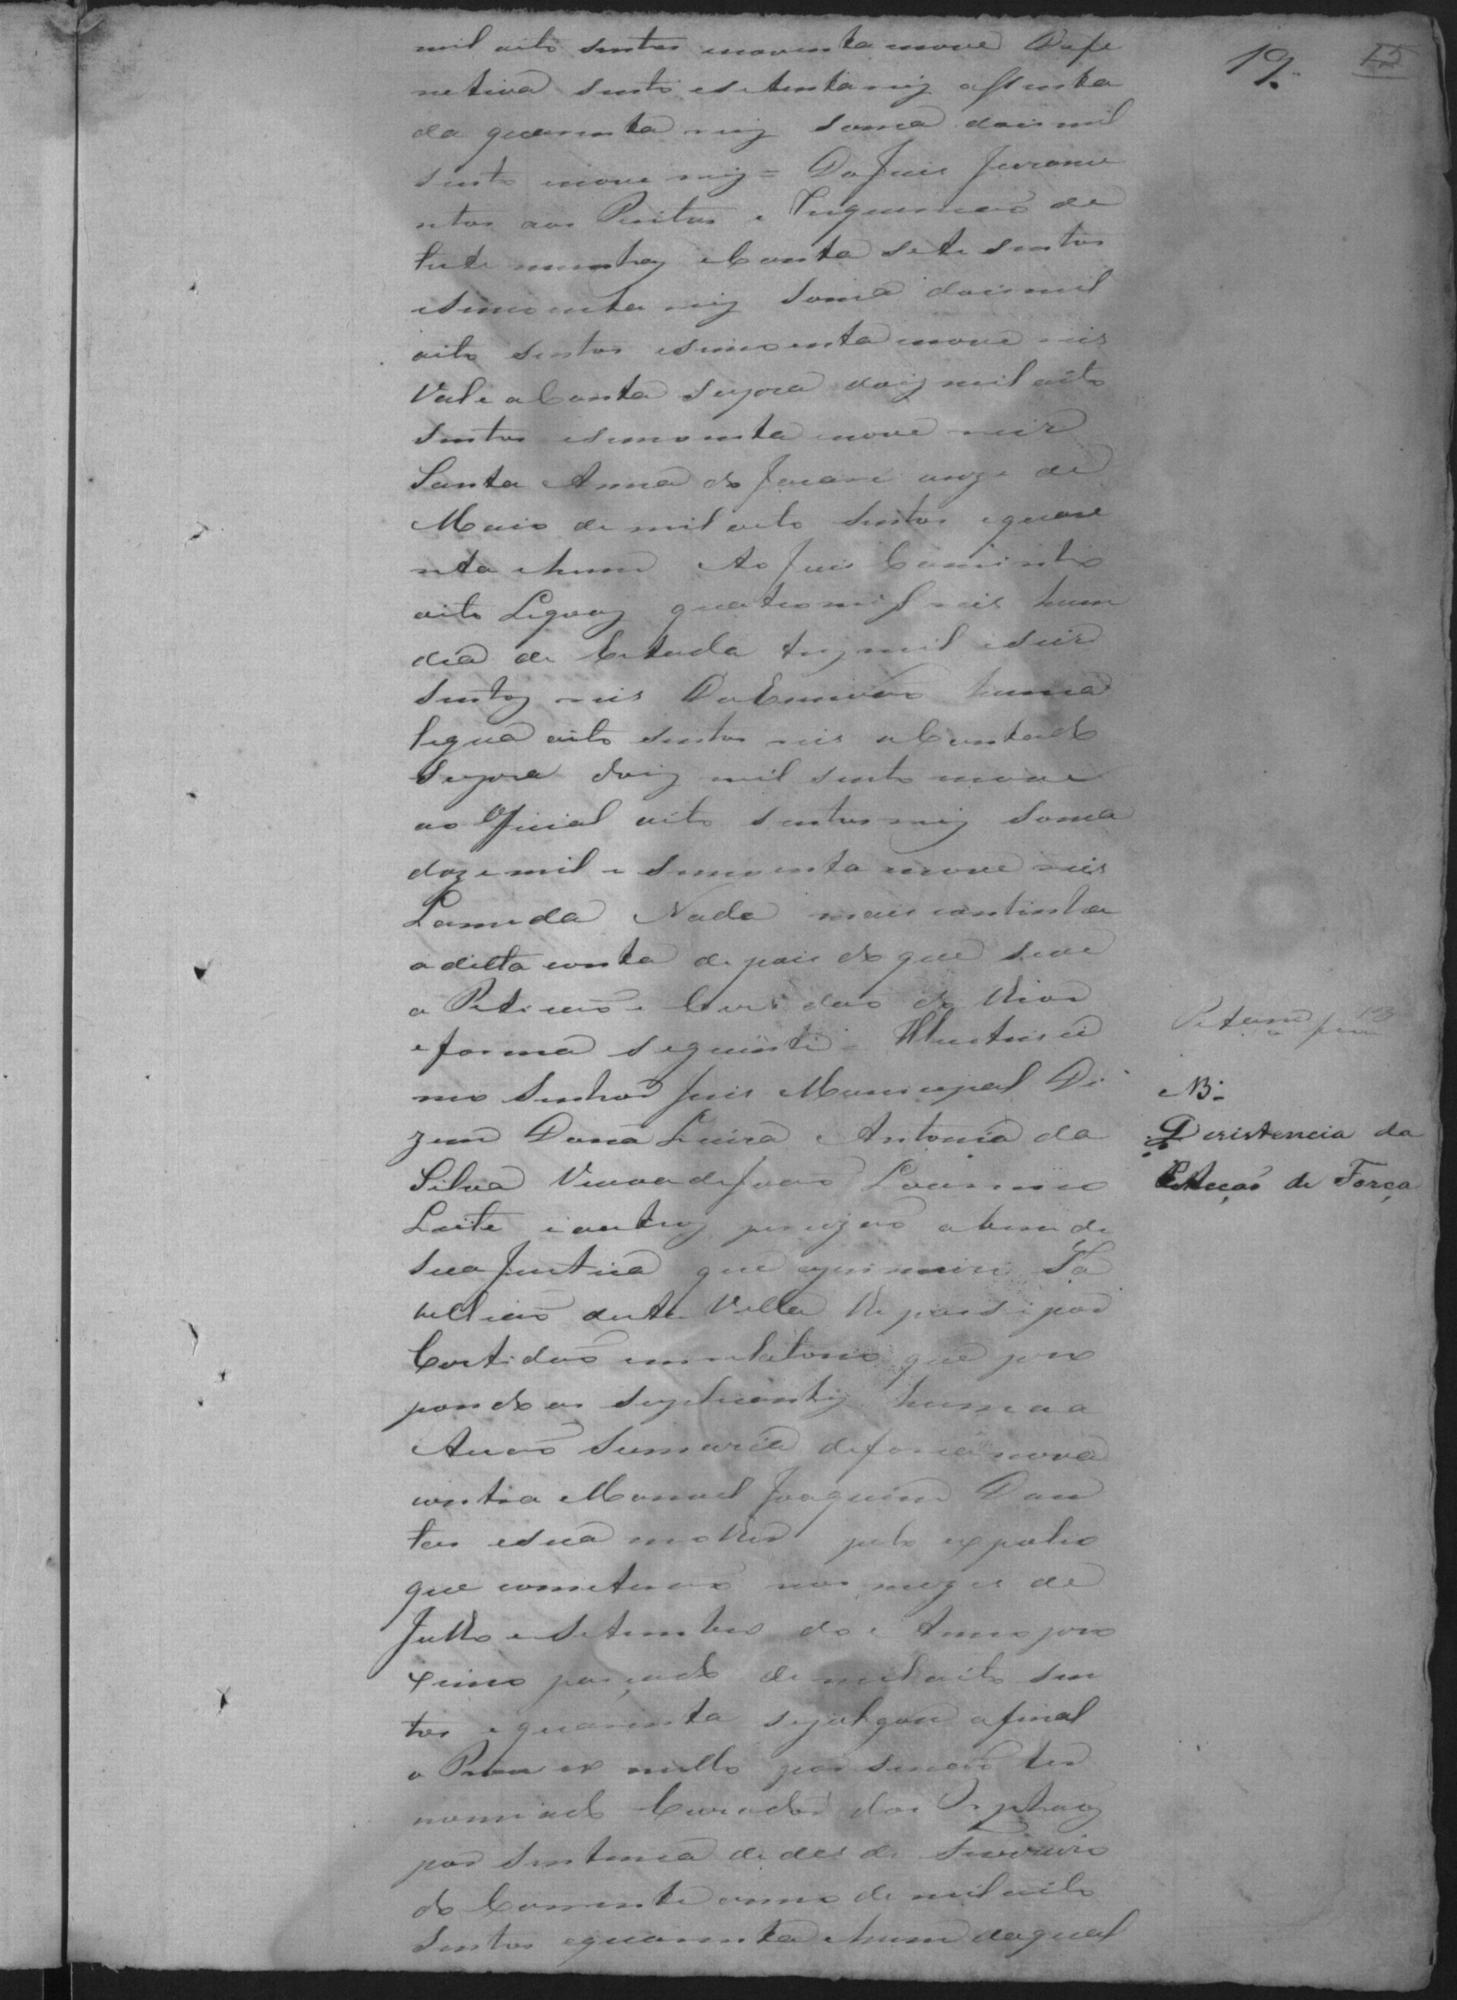 19. 15
mil oito sentos enoventa enove Defe
netiva sento esetenta reiz assenta
da quarenta reiz soma dois mil
sento enove reiz = Do Juis Jurame
ntos aos Peritos e Inquiricaõ de
testemunhaz e Conta sete sentos
esincoenta reiz soma dois mil
oito sentos esincoenta enove reis
Vale a Conta supra doiz mil oito
sentos esincoenta enove reis
Santa Anna do onze de
Maio de mil oito sentos equare
nta ehum Ao Juis Caminho
oito Legoaz quatro mil reis hum
dia de Estada trez mil eseis
sentoz reis Do Escrivaõ huma
legua oito sentos reis a Conta do
supra doiz mil sento enove
ao Oficial oito sentos reiz soma
doze mil e sincoenta enove reis
Lameda Nada mais continha
a ditta conta depois do que seve
a Peticaõ e Certidaõ do thior
e forma seguinte = Illustrissi
mo Senhor Juis Municipal Di
zem Dona Luiza Antonia da
Silva Viuva de Joaõ Lourenco
Leite e outroz precizaõ a bem de
sua Justica que o primeiro Ta
belliaõ desta Villa lhe passe por
Certidaõ emrelatorio que pro
pondo os suplicantez huma a
Accaõ sumaria de forca nova
contra Manoel Joaquim Dan
tas esua molher pelo expolio
que cometeraõ nos mezes de
Julho e Setembro do Anno pro
ximo passado de mil oito sen
tos equarenta sejulgou afinal
o Proseco nullo por senaõ ter
nomiado Curador dos Orphaoz
por sentenca de des de Fevereiro
do Corrente anno de mil oito
sentos equarenta ehum da qual
Petiçaõ
NB:
Desistencia da
Acçaõ de Força